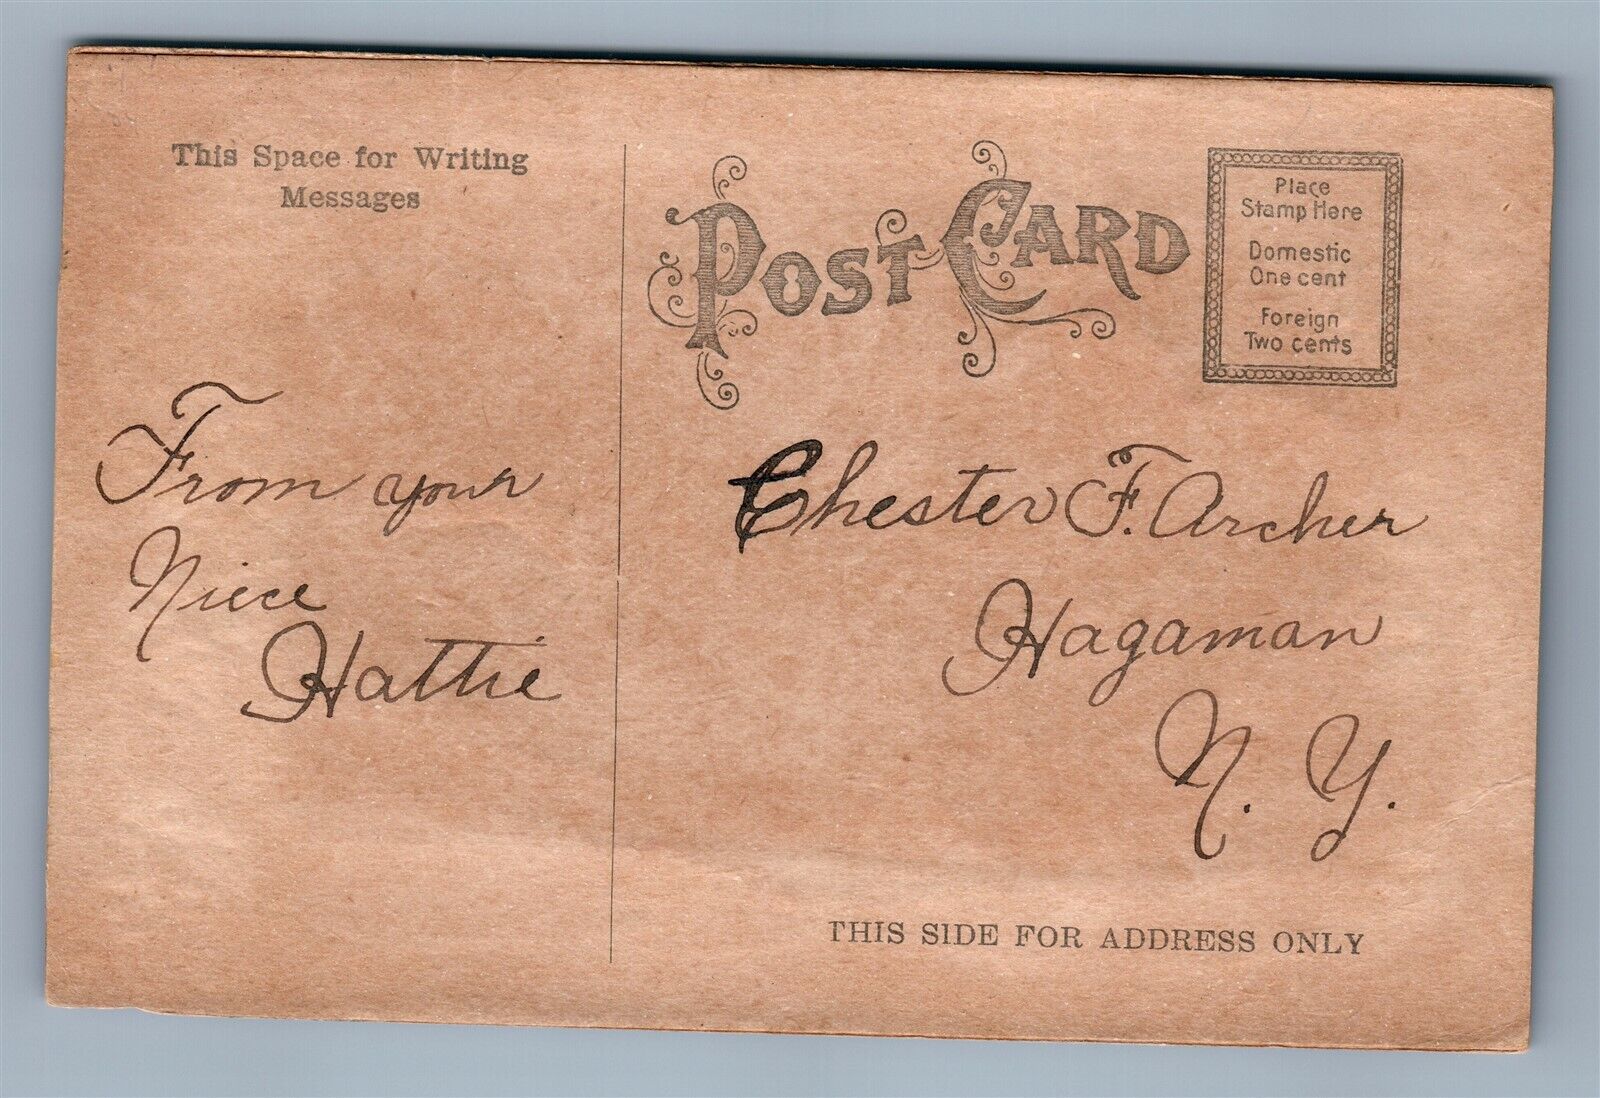 This Space for Writing
Messages
POST CARD
Place
Stamp Here
Domestic
One cent
Foreign
Two cents
From your
Niece
Hattie
Chester F. Archer
Hagaman
N. Y.
THIS SIDE FOR ADDRESS ONLY